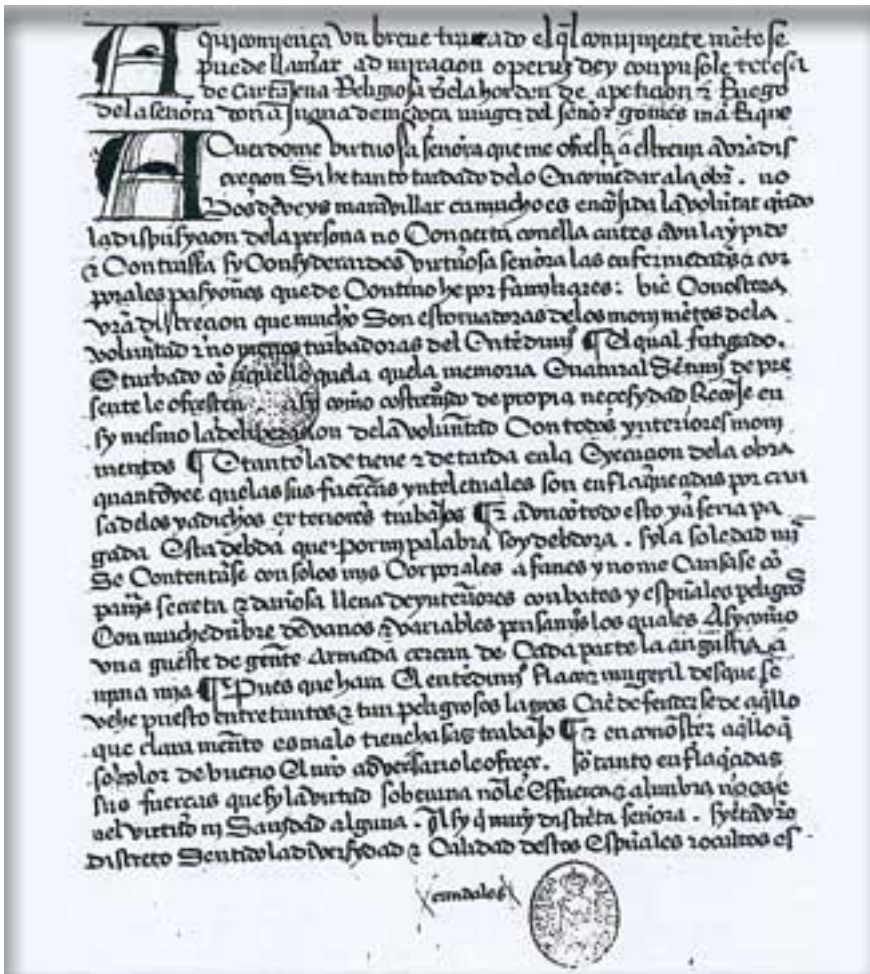 Aqui comiença vn breue tractado el q̃l conuinjente mẽte se
puede llamar admiracion operũ dey conpusole teresa
de Cartajena Religiosa dela horden de apeticion & Ruego
dela señora doña Juana de mẽdoça muger del señor gomes mãrrique
Acuerdome virtuosa señora que me ofresçi a escreuir a vrã dis
creçion Si he tanto tardado delo Encomẽdar ala obr̃. no
Vos deueys marauillar ca mucho es encojida la volũtat quãdo
la dispusyçion dela persona no Conçierta con ella antes avn la ynpide
& Contrasta sy Consyderardes virtuosa señora las enfermedades & cor
porales pasyones que de Contino he por familiares: biẽ Conosçera
vrã discreçion que mucho Son estoruadoras delos mouimẽtos dela
voluntad & no menos turbadoras del Entẽdimj̃ ¶ El qual fatigado.
E turbado cõ aquello quela quela memoria E natural Sẽtimj̃ de pre
sente le ofresçen asy como costrenido de propia neçesydad Recoje en
sy mesmo la deliberaçion dela voluntad Con todos ynteriores moui
mentos ¶ E tanto la detiene & detarda en la Esecuçion dela obra
quanto vee quelas sus fuerças ynteletuales son enflaqueçidas por cavi
sa delos ya dichos exteriores trabajos ¶ & avn con todo esto ya seria pa
gada Esta debda que por mj palabra soy debdora. sy la soledad mj̃
Se Contentase con solos mis Corporales afanes y no me Causase cõ
panj̃a secreta & dañosa llena de ynteriores conbates y esprituales peligros
Con muchedũbre de vanos & variables pensamj̃os los quales Asy como
vna hueste de gente Armada çercan de Cada parte la angustiada a
nima mia ¶ Pues que hara El entẽdimj̃ flaco & mugeril desque se
vehe puesto entre tantos & tan peligrosos lazos Ca ẽ defender se de aq̃llo
que clara mente es malo tiene hasaz trabajo ¶ & en conosçer aq̃llo q̃
so color de bueno El nrõ adversario le ofreçe. sõ tanto enflaq̃çidas
sus fuerças que sy la virtud soberuina nõ le Esfuerça & alunbra no es e
nel virtud nj Sanidad alguna. Asy q̃ muy discreta señora. syẽta vrõ
discreto Sentido la diversydad & Calidad destos Esprituales & ocultos es
candalos